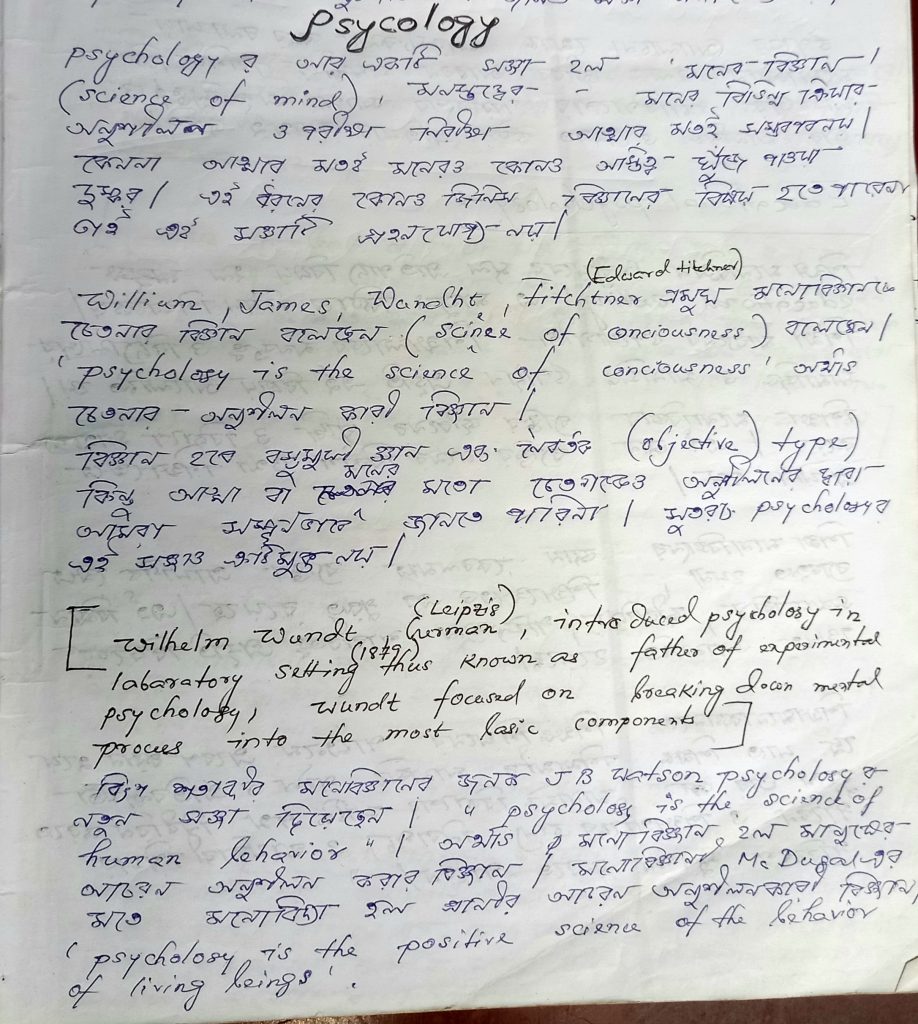 Psycology
psychology র আর একটি সজ্ঞা হল 'মনের বিজ্ঞান'
(science of mind), মনস্তত্ত্বের - - মনের বিভিন্ন ক্রিয়ার-
অনুশীলন ও পরীক্ষা নিরীক্ষা আত্মার মতই সম্ভবপর নয়|
কেননা আত্মার মতই মনেরও কোনও অস্তিত্ব- খুঁজে পাওয়া
দুষ্কর| এই ধরনের কোনও জিনিস বিজ্ঞানের বিষয় হতে পারেনা
তাই এই সজ্ঞাটি গ্রহনযোগ্য- নয়|
(Edward titchner)
William, James, Wundht, titchtner প্রমুখ মনোবিজ্ঞানকে
চেতনার বিজ্ঞান বলেছেন (scinee of conciousness) বলেছেন|
'psychology is the science of conciousness' অর্থাৎ
চেতনার - অনুশীলন কারী বিজ্ঞান|
বিজ্ঞান হবে বস্তুমুখী জ্ঞান এবং নৈর্ব্যক্তিক (objective) type)
কিন্তু আত্মা বা মনের মতো চেতনাকেও অনুশীলনের দ্বারা
আমরা সম্পূর্ণভাবে জানতে পারিনা| সুতরাং psychologyর
এই সজ্ঞাও ত্রুটিমুক্ত নয়|
[Wilhelm Wundt, (Leipzis) German, introduced psychology in
labaratory setting (1879) thus known as father of experimental
psychology, wundt focused on breaking down mental
proces into the most basic components]
বিংশ শতাব্দীর মনোবিজ্ঞানের জনক JB Watson psychologyর
নতুন সজ্ঞা দিয়েছেন| "psychology is the science of
human behavior"| অর্থাৎ মনোবিজ্ঞান হল মানুষের
আচরন অনুশীলন করার বিজ্ঞান| মনোবিজ্ঞানী Mc Dugalএর
মতে মনোবিদ্যা হল প্রানীর আচরন অনুশীলনকারী বিজ্ঞান,
'psychology is the positive science of the behavior
of living beings'.